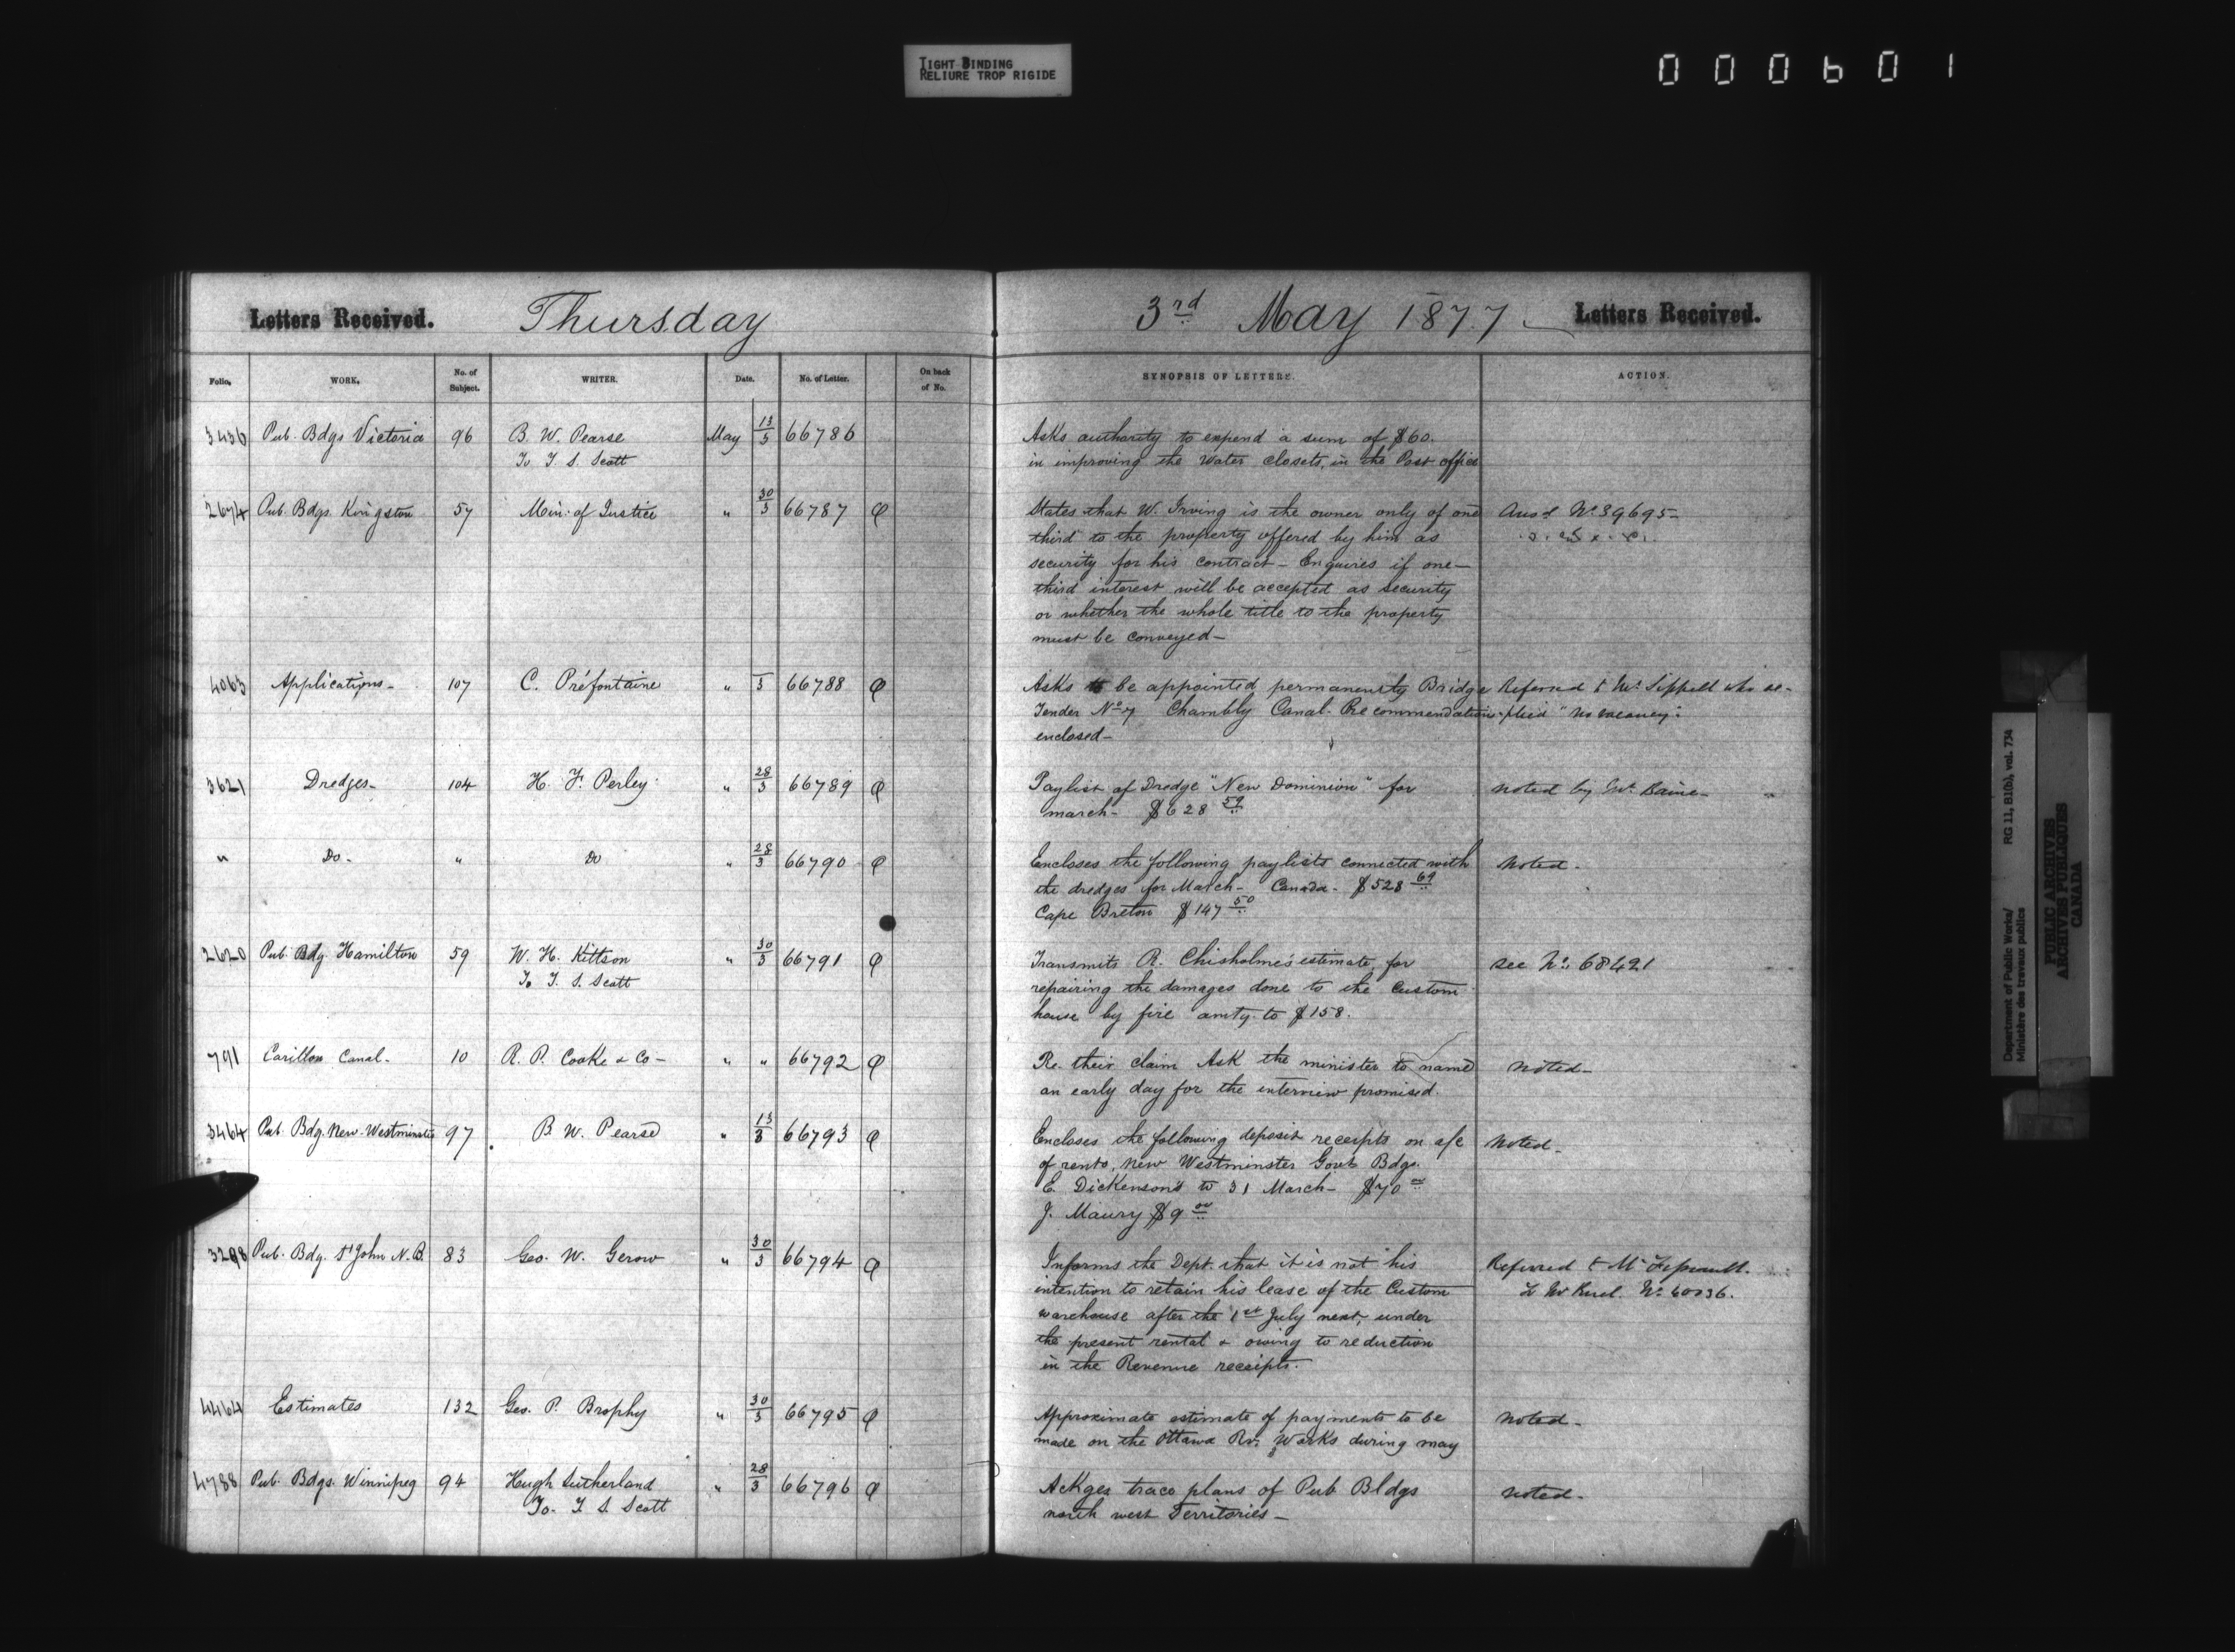 TIGHT BINDING
RELIURE TROP RIGIDE
000601
Letters Received. Thursday 3rd May 1877 Letters Received.
Folio. WORK. No. of Subject. WRITER. Date. No. of Letter. On back of No. SYNOPSIS OF LETTERS. ACTION.
3436 Pub. Bdgs Victoria 96 B. W. Pearse May 13/3 66786 Asks authority to expend a sum of $60.
To T. S. Scott in improving the water closets, in the Post office
2674 Pub. Bdgs. Kingston 57 Min: of Justice " 30/3 66787 States that W. Irving is the owner only of one Ansd No 39695
third to the property offered by him as
security for his contract - Enquires if one-
third interest will be accepted as security
or whether the whole title to the property
must be conveyed-
4063 Applications- 107 C. Préfontaine " /3 66788 Asks to be appointed permanently Bridge Referred to Mr. Sippell who re-
Tender No 7 Chambly Canal. Recommendations -plied "no vacancy".
enclosed-
3621 Dredges- 104 H. F. Perley " 28/3 66789 Paylist of Dredge "New Dominion" for noted by Mr. Baine-
march- $628 59
" Do- " Do " 28/3 66790 Encloses the following paylists connected with Noted-
the dredges for March- Canada- $528 69
Cape Breton $147 50
2620 Pub. Bdg. Hamilton 59 W. H. Kittson " 30/3 66791 Transmits R. Chisholme's estimate, for see No: 68421
To T. S. Scott repairing the damages done to the Custom
house by fire amtg. to $158.
791 Carillon Canal- 10 R. P. Cooke & Co- " " 66792 Re. their claim Ask the minister to named noted-
an early day for the interview promised.
3464 Pub. Bdg. New-Westminster 97 B. W. Pearse " 13/3 66793 Encloses the following deposit receipts on a/c Noted-
of rents, New Westminster Govt Bdgs.
E. Dickenson's to 31 March- $70 00
J. Maury $9 00
3298 Pub. Bdg. St John N.B. 83 Geo. W. Gerow " 30/3 66794 Informs the Dept. that it is not his Referred to Mr
intention to retain his lease of the Custom No 60036.
warehouse after the 1st July next, under
the present rental & owing to reduction
in the Revenue receipts.
4464 Estimates 132 Geo. P. Brophy " 30/3 66795 Approximate estimate of payments to be noted-
made on the Ottawa Rr. Works during may
4788 Pub. Bdgs. Winnipeg 94 Hugh Sutherland " 28/3 66796 Ackges trace plans of Pub Bldgs noted-
To- T. S. Scott north west Territories-
Department of Public Works/ RG 11, B1(b), vol. 734
Ministère des travaux publics
PUBLIC ARCHIVES
ARCHIVES PUBLIQUES
CANADA